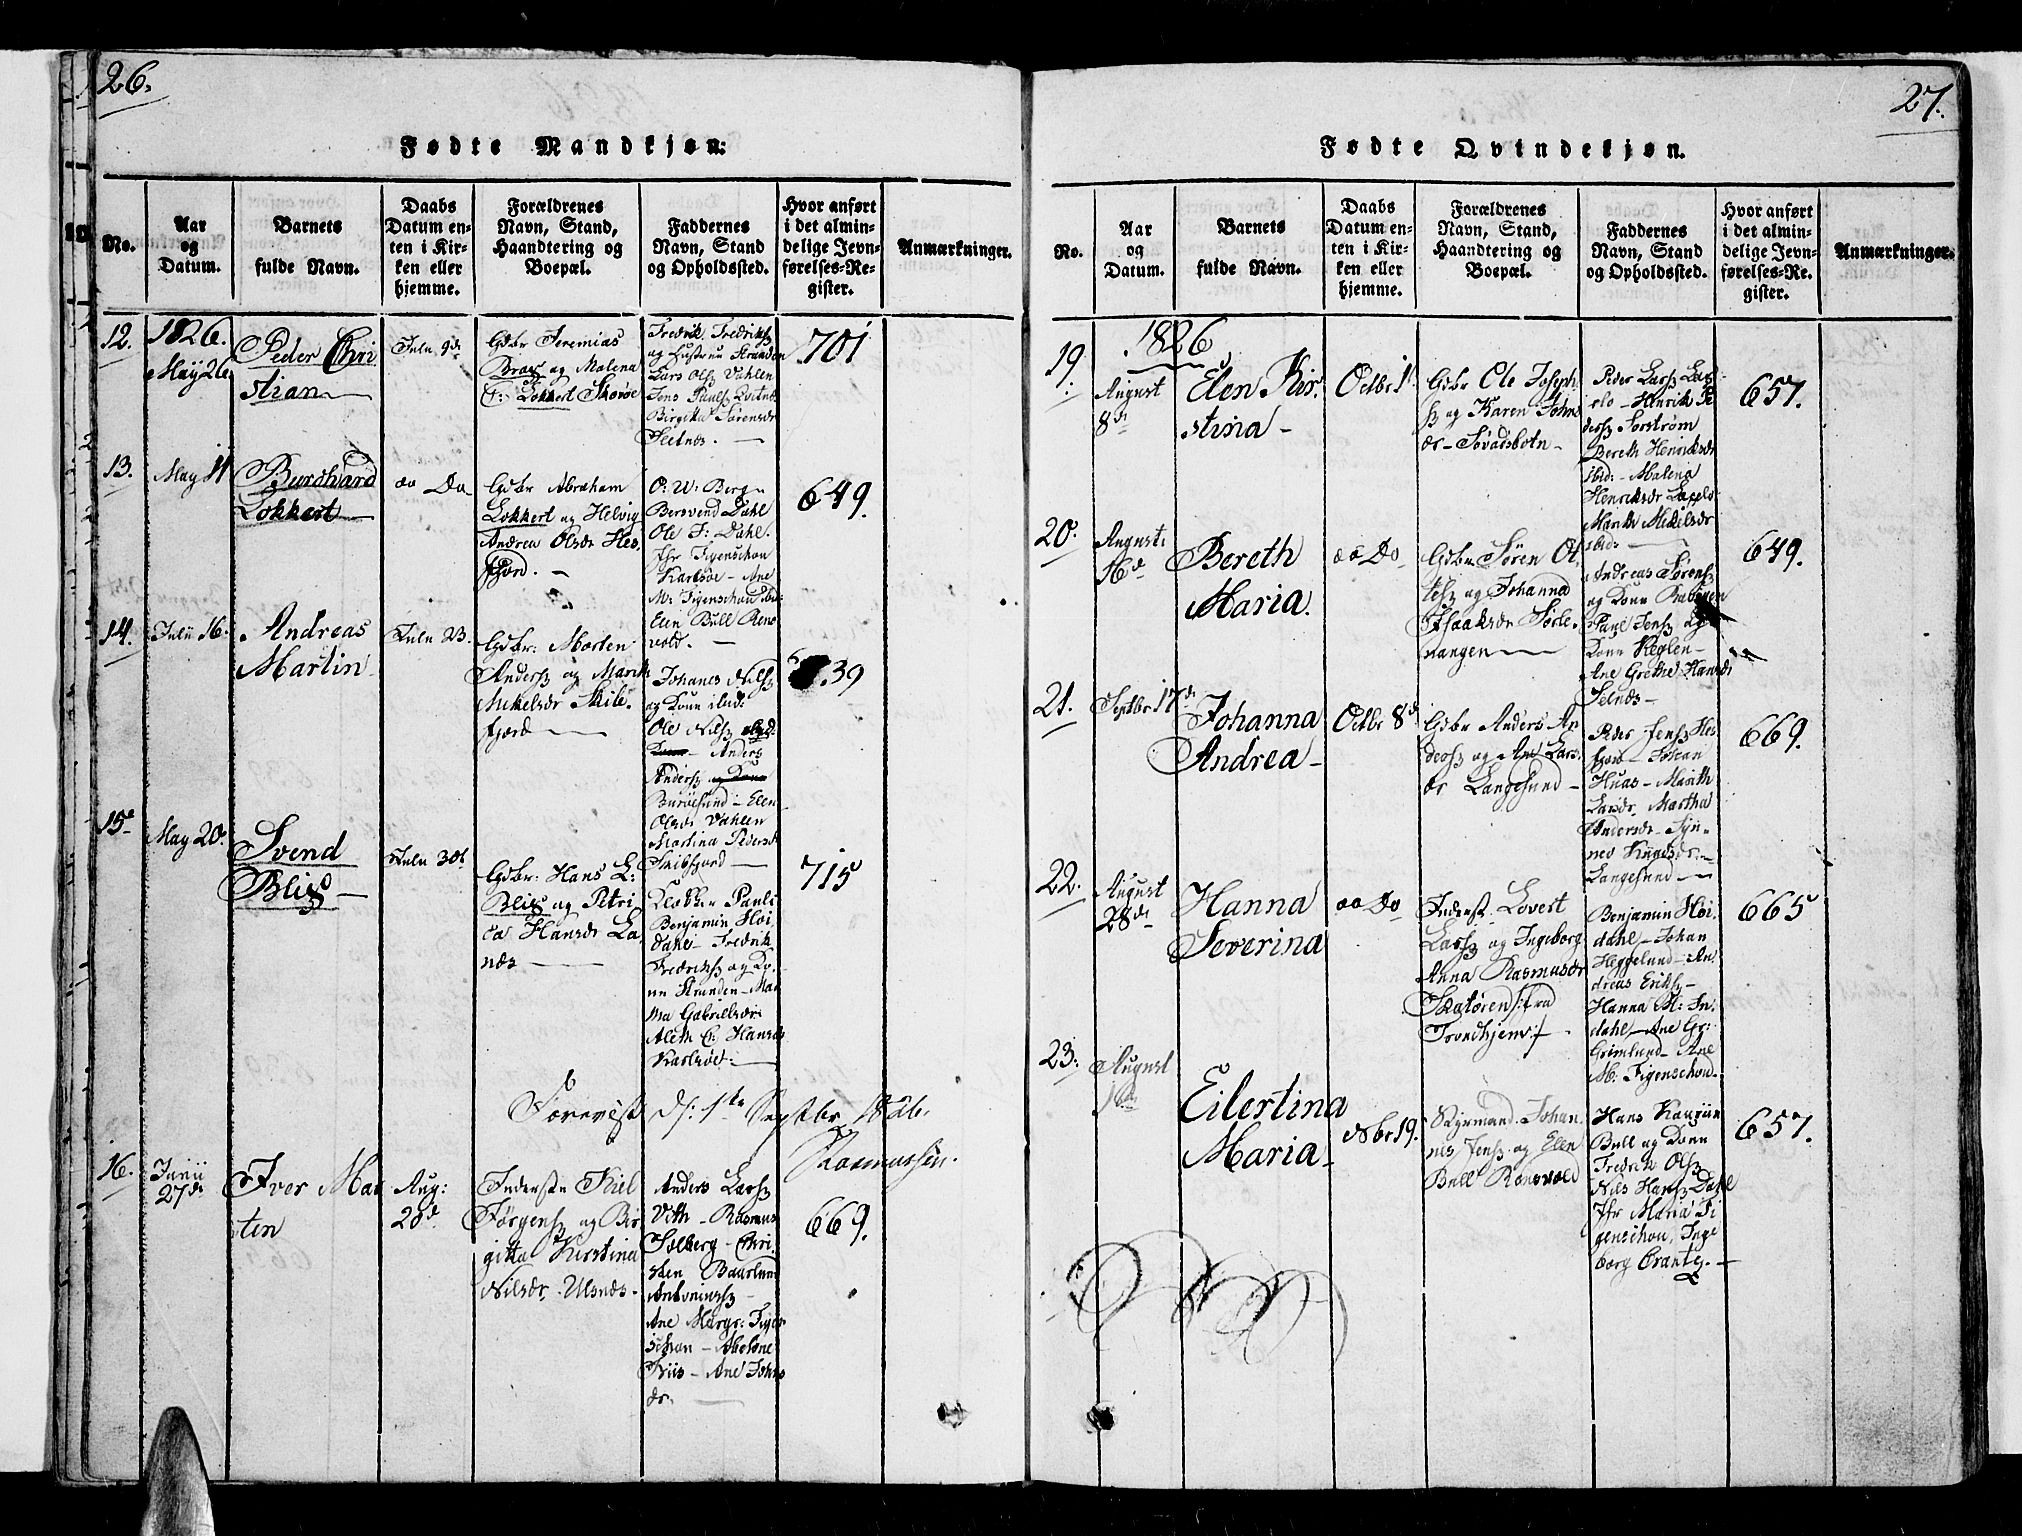 26.
Fødte Mandkjøn:
No.
Aar
og
Datum.
Barnets
fulde Navn.
Daabs
Datum en-
ten i Kir-
ken eller
hjemme.
Forældrenes
Navn, Stand,
Haandtering og
Boepæl.
Faddernes
Navn, Stand
og Opholdssted.
Hvor anført
i det almin-
delige Jevn-
førelses-Re-
gister.
Anmærkninger.
12.
1826.
May 26
Peder Chri
stian
Julu 9de
Gdbr Jeremias
og Malena
C: Lokkert Skorøe
Fredrik Fredriks
og Hustrue Stranden
Lars Ols Vahlen
Jens Pauls
Birgitta Sørensdr
701
13.
May 11
Burchard
Lokkert
ao Do
Gdbr Abraham
Lokkert og Helvig
Andrea Olsdr Hes
fjord.
O: W: Berg
Bersvend Dahl
Ole F: Dahl.
Jfr Figenschou
Karlsøe - Ane
M: Figenschou
Elen Bull Rens
vold.
649.
14.
Julii 16.
Andreas
Martin
Julu 23.
Gdbr: Morten
Anders og Marith
Mikelsdr Skibs
fjord
Johanes Nils
og Kone
Ole Nils
Kone - Anders
Anders og Kone
Buröesund - Elen
Olsdr Vahlen
Martina Pedersdr
Skibsfjord
639
15.
May 20.
Svend
Blix
Julu 30t
Gdbr: Hans L:
Blix og Petri
ca Hansdr La
næs
Klokker Pauli
Benjamin Høi
dahl - Fredrik
Fredriks og Ko
ne Stranden - Ma
Gabrielsdr
Aleth C: Hansdr
Karlsøe:
715
Foreviist d: 1ste Septbr 1826.
Rasmussen.
16.
Junii
27de
Iver Mar
ten
Aug:
20d
Inderste Kiel
Jørgens og Bir
gitta Kirstina
Nilsdr. Ulsnæs.
Anders Lars
Vith - Rasmus
Solberg - Chri
sten
Antonius
Ane Margr: Figen
schou - Abelone
Friis - Ane Johns
dr.
669.
27.
Fødte Qvindekjøn.
No.
Aar
og
Datum.
Barnets
fulde Navn.
Daabs
Datum en-
ten i Kir-
ken eller
hjemme.
Forældrenes
Navn, Stand,
Haandtering og
Boepæl.
Faddernes
Navn, Stand
og Opholdssted.
Hvor anført
i det almin-
delige Jevn-
førelses-Re-
gister.
Anmærkninger.
19.
1826
August
8d
Elen Kir
stina
Octbr 1t
Gdbr Ole Joseph
og Karen Johns
dr - Sövadsbotn
Peder Lars
- Henrik Pe
ders Sørstrøm
Bereth Henriksdr
ibid: - Malena
Henriksdr
Marith Mikelsdr
ibid:
657.
20.
August
16d
Bereth
Maria.
ao Do
Gdbr Søren Ot
tes og Johanna
Isaaksdr Sørle
nangen
Andreas Sørens
og Kone
Paul Jens og
Kone Reglen
Ane Grethe Hansdr
Selnæs
649.
21.
Septbr 17d
Johanna
Andrea
Octbr 8d
Gdbr Anders An
ders og Ane Lars
dr Langesund
Peder Jens Hes
fjord - Johan
Huas - Marith
Larsdr, Martha
Andersdr - Syn
nev Knudsdr
Langesund
669.
22.
August
28de
Hanna
Severina
ao Do
Inderst. Lovert
Lars og Ingeborg
Anna Rasmusdr
Skatøren /: fra
Trondhjem :/
Benjamin Høi
dahl - Johan
Heggelund - An
dreas Eriks
Hanna M: In
dahl - Ane Gr:
Grimlund - Ane
M: Figenschou
665
23.
August
Eilertina
Maria
Nbr 19.
Styrmand. Johan
nes Jens og Elen
Bull Rønsvold
Hans
Bull og Kone
Fredrik Ols
Nils Hans Dahl
Jfr Maria Fi
genschou, Inge
borg Crantz.
657.